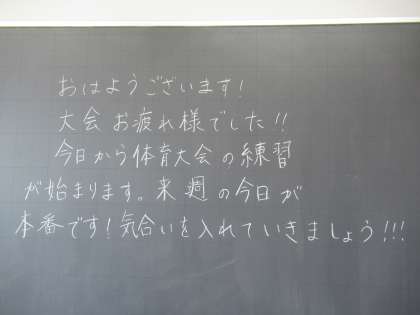 おはようございます!
大会お疲れ様でした!!
今日から体育大会の練習
が始まります。来週の今日が
本番です!気合いを入れていきましょう!!!